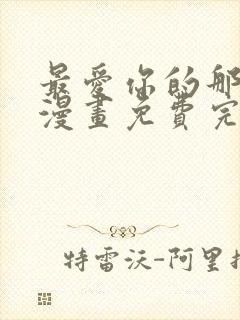 最愛你的那
漫畫免費完
特雷沃-阿里扎